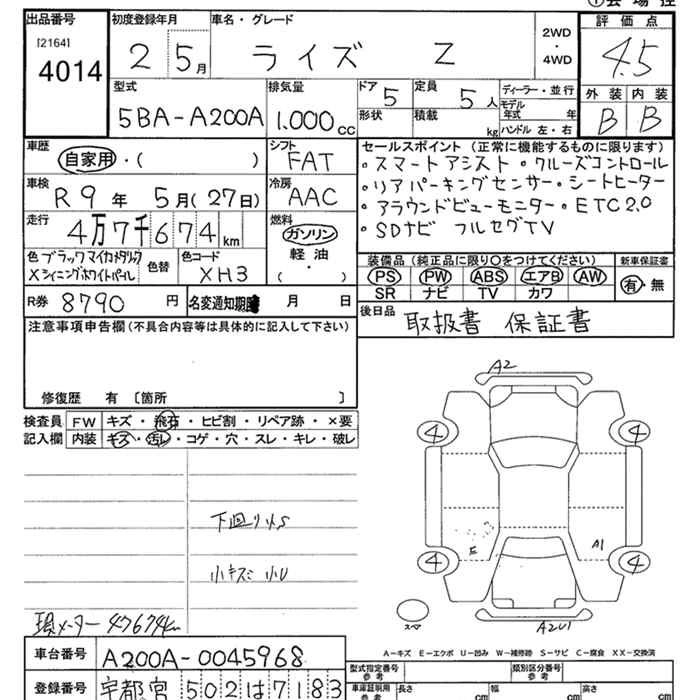 出品番号
[2164]
4014
初度登録年月
2 5月
車名・グレード
ライズ Z
2WD
・
4WD
評価点
4.5
外装 内装
B B
型式
5BA-A200A
排気量
1.000cc
ドア 5
形状
定員 5人
積載 kg
ディーラー・並行
モデル年式 年
ハンドル 左・右
車歴
自家用・( )
シフト
FAT
車検
R9年5月(27日)
冷房
AAC
走行
4万7千674km
燃料
ガソリン
軽油
( ・ )
色 ブラックマイカメタリック
Xシャイニングホワイトパール
色替
色コード
XH3
R券 8790円
名変通知期限 月 日
セールスポイント(正常に機能するものに限ります)
・スマートアシスト・クルーズコントロール
・リアパーキングセンサー・シートヒーター
・アラウンドビューモニター・ETC2.0
・SDナビ フルセグTV
装備品(純正品に限り○をつけてください)
PS PW ABS エアB AW
SR ナビ TV カワ
新車保証書
有・無
後日品
取扱書 保証書
注意事項申告欄(不具合内容等は具体的に記入して下さい)
修復歴 有 〔箇所 〕
検査員記入欄
FW キズ・飛石・ヒビ割・リペア跡・×要
内装 キズ・汚レ・コゲ・穴・スレ・キレ・破レ
下回りサS
小キズ 小U
現メーター 47674km
A2
4 4
E A1
4 4
スペア
A2U1
A−キズ E−エクボ U−凹み W−補修跡 S−サビ C−腐食 XX−交換済
車台番号
A200A-0045968
登録番号
宇都宮502は7183
型式指定番号
参考
類別区分番号
参考
車庫証明用
参考
長さ cm
幅 cm
高さ cm